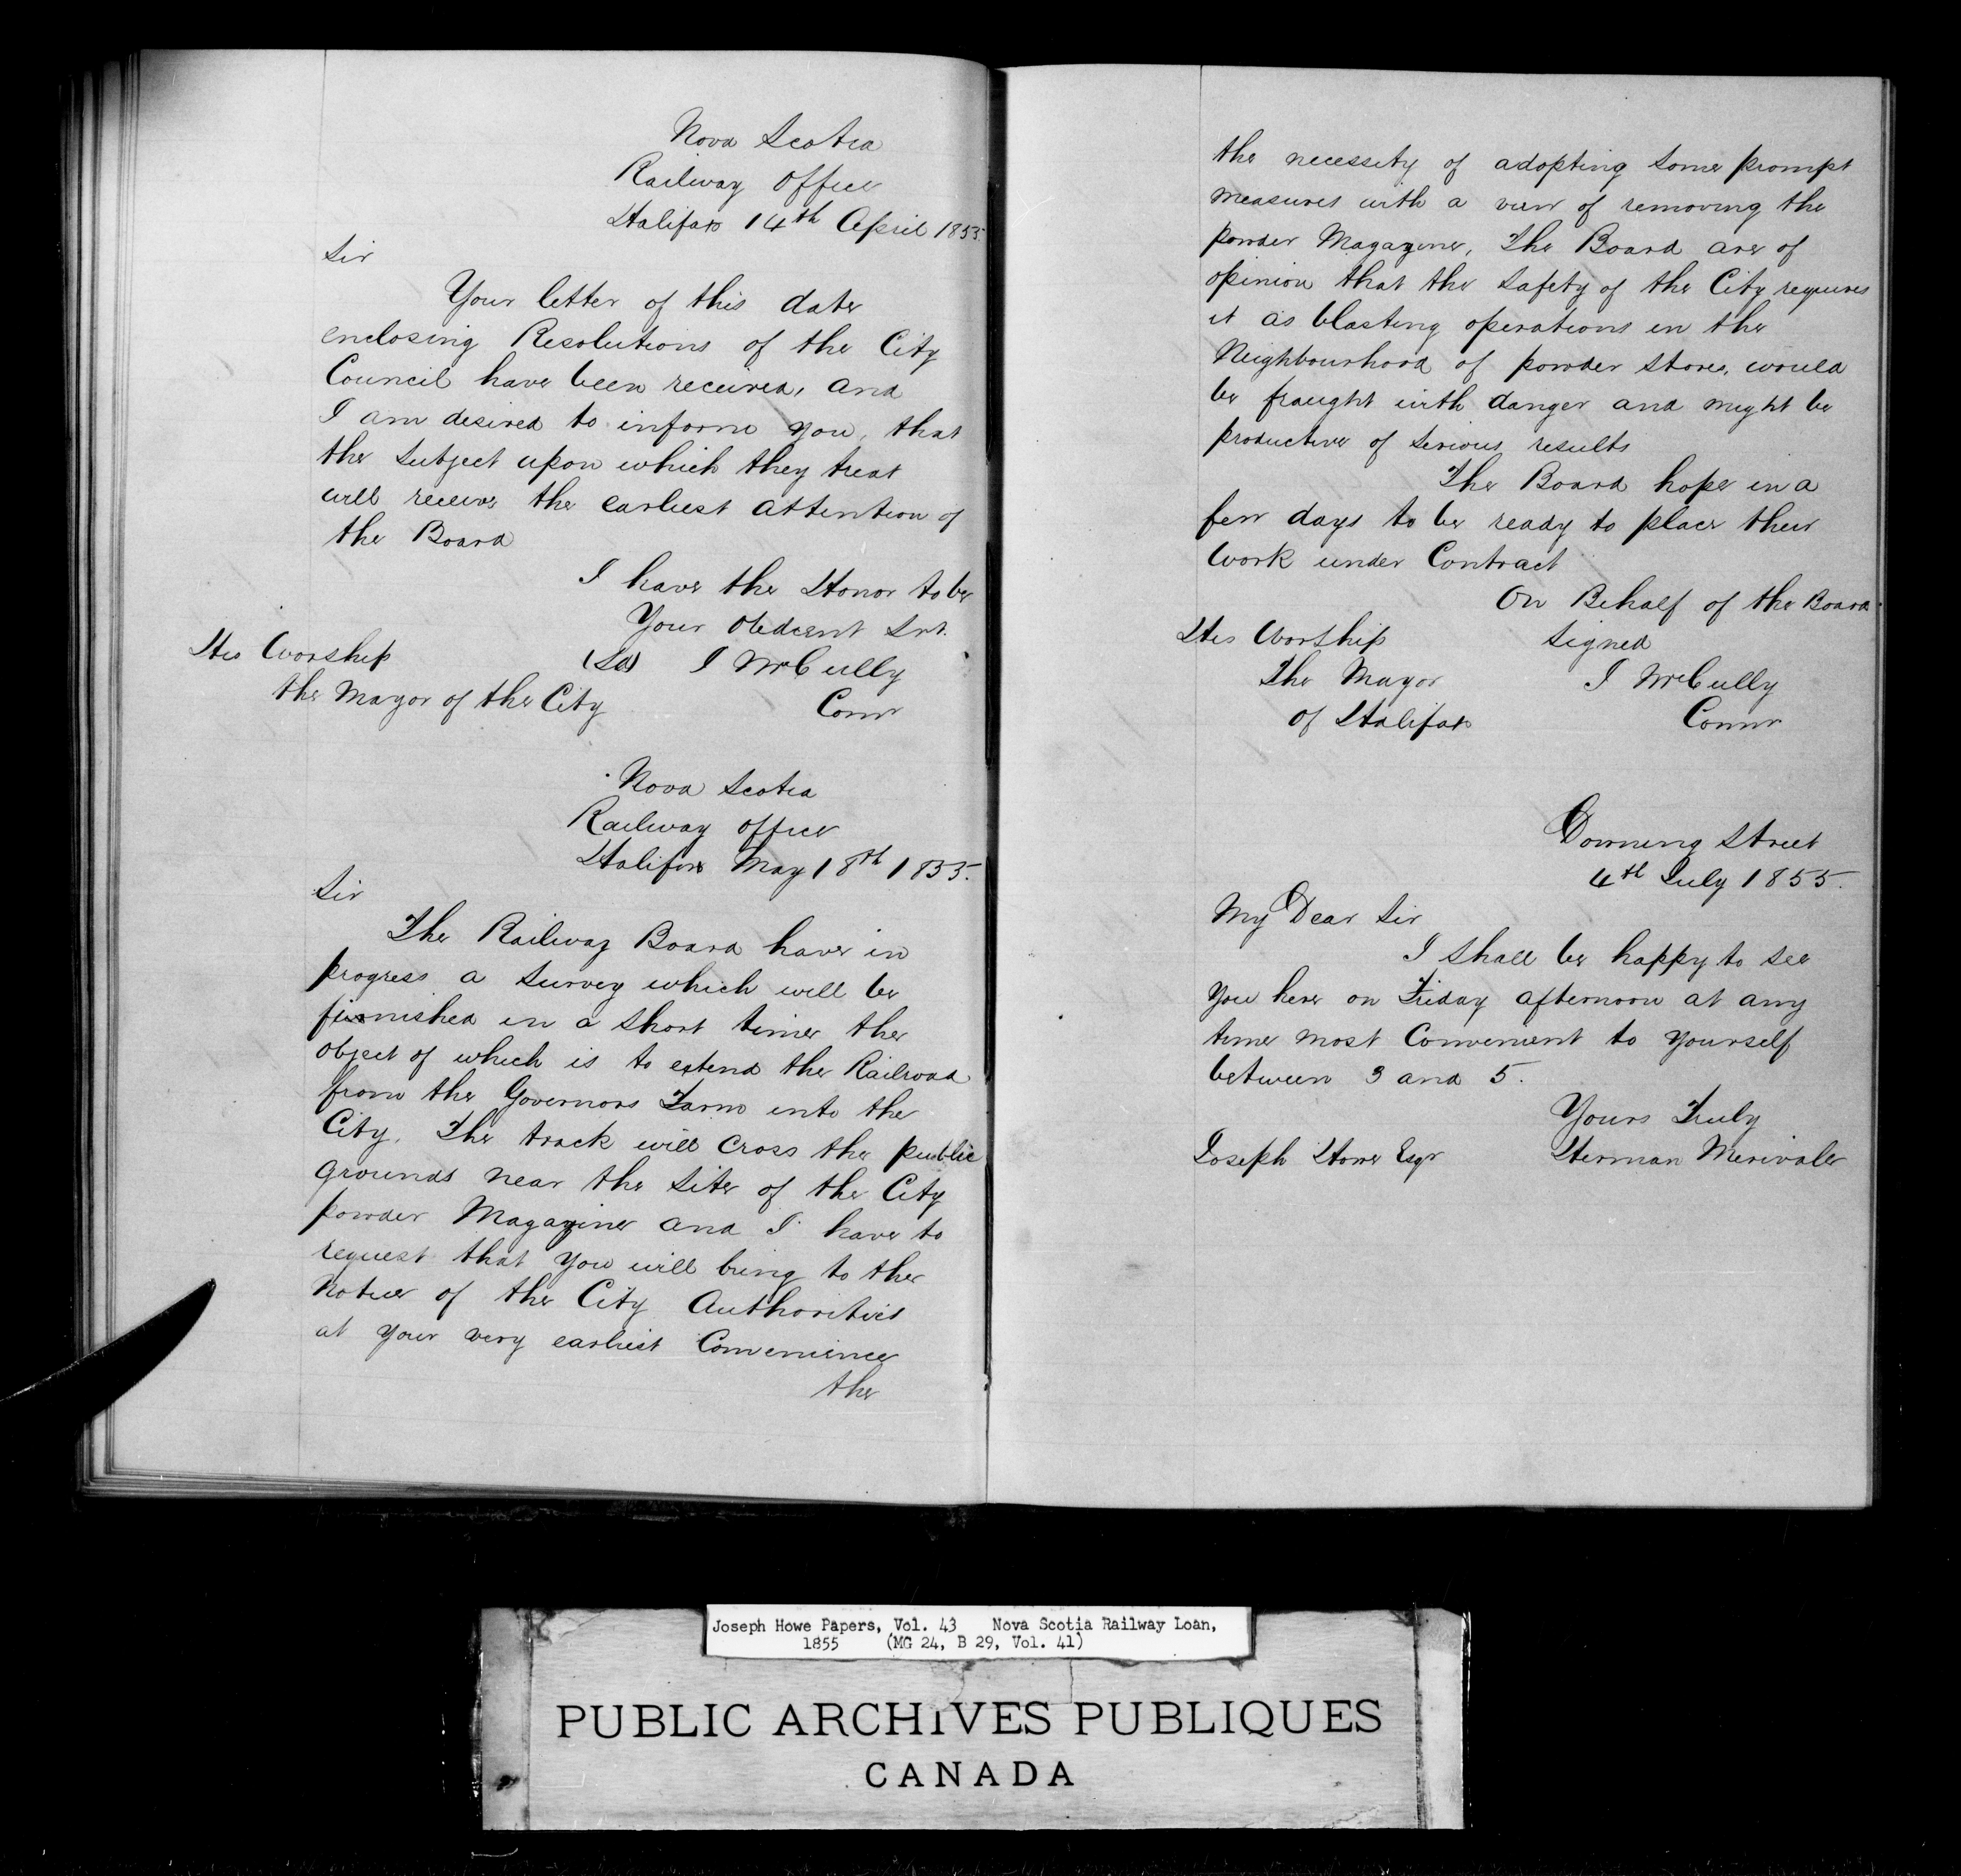 Nova Scotia
Railway Office
Halifax 14th April 1855.
Sir
Your letter of this date
enclosing Resolutions of the City
Council have been received, and
I am desired to inform you, that
the Subject upon which they treat
will receive the earliest attention of
the Board
I have the Honor to be
Your Obedient Svt.
His Worship (Sd) J McCully
the Mayor of the City Comr
Nova Scotia
Railway Office
Halifax May 18th 1855.
Sir
The Railway Board have in
progress a Survey which will be
finished in a short time the
object of which is to extend the Railroad
from the Governors Farm into the
City. The track will cross the public
grounds near the Site of the City
powder Magazine and I have to
request that you will bring to the
Notice of the City Authorities
at your very earliest Convenience
the
the necessity of adopting some prompt
measures with a view of removing the
powder Magazine, The Board are of
opinion that the Safety of the City requires
it as blasting operations in the
Neighbourhood of powder stores, would
be fraught with danger and might be
productive of serious results
The Board hope in a
few days to be ready to place their
work under Contract
On Behalf of the Board
His Worship Signed
The Mayor J McCully
of Halifax Commr
Downing Street
4th July 1855.
My Dear Sir
I shall be happy to see
you here on Friday afternoon at any
time most Convenient to yourself
between 3 and 5.
Yours Truly
Joseph Howe Esqr Herman Merivale
Joseph Howe Papers, Vol. 43 Nova Scotia Railway Loan,
1855 (MG 24, B 29, Vol. 41)
PUBLIC ARCHIVES PUBLIQUES
CANADA